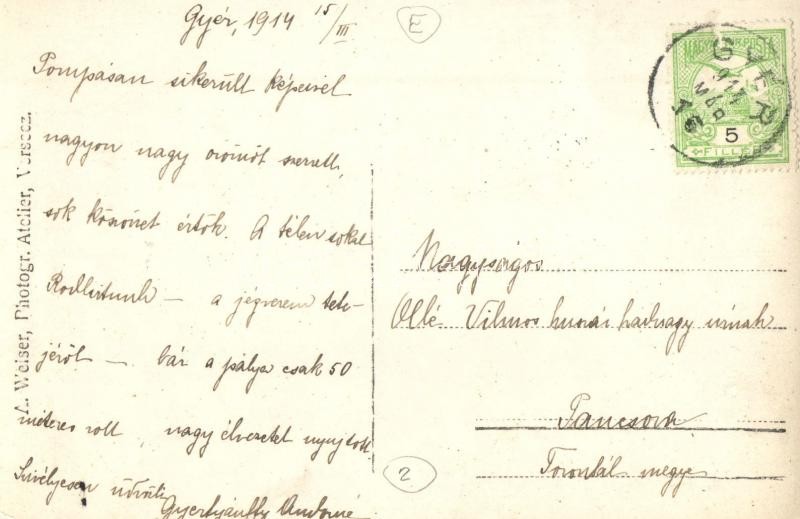 Gyér, 1914 15/III
E
Pompásan sikerült képeivel
nagyon nagy örömöt szerzett,
sok köszönet értök. A télen sokat
Rodliztunk — a jégverem tete-
jéről — bár a pálya csak 50
méteres volt, nagy élvezetet nyujtott.
Szivélyesen üdvözli
Gyertyánffy Andorné
A. Weiser, Photogr. Atelier, Versecz.
MAGYAR KIR. POSTA
5
FILLÉR
GYÉR
914 MÁR 15
Nagyságos
Ollé Vilmos huszár hadnagy urnak
Pancsova
Torontál megye
2